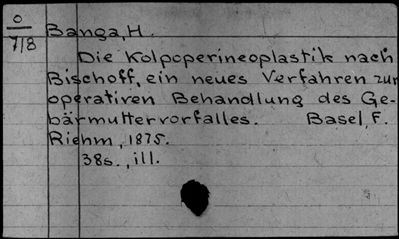 O
7/8
Banga, H.
Die Kolpoperineoplastik nach
Bischoff, ein neues Verfahren zur
operativen Behandlung des Ge-
bärmuttervorfalles. Basel, F.
Riehm, 1875.
38s., ill.